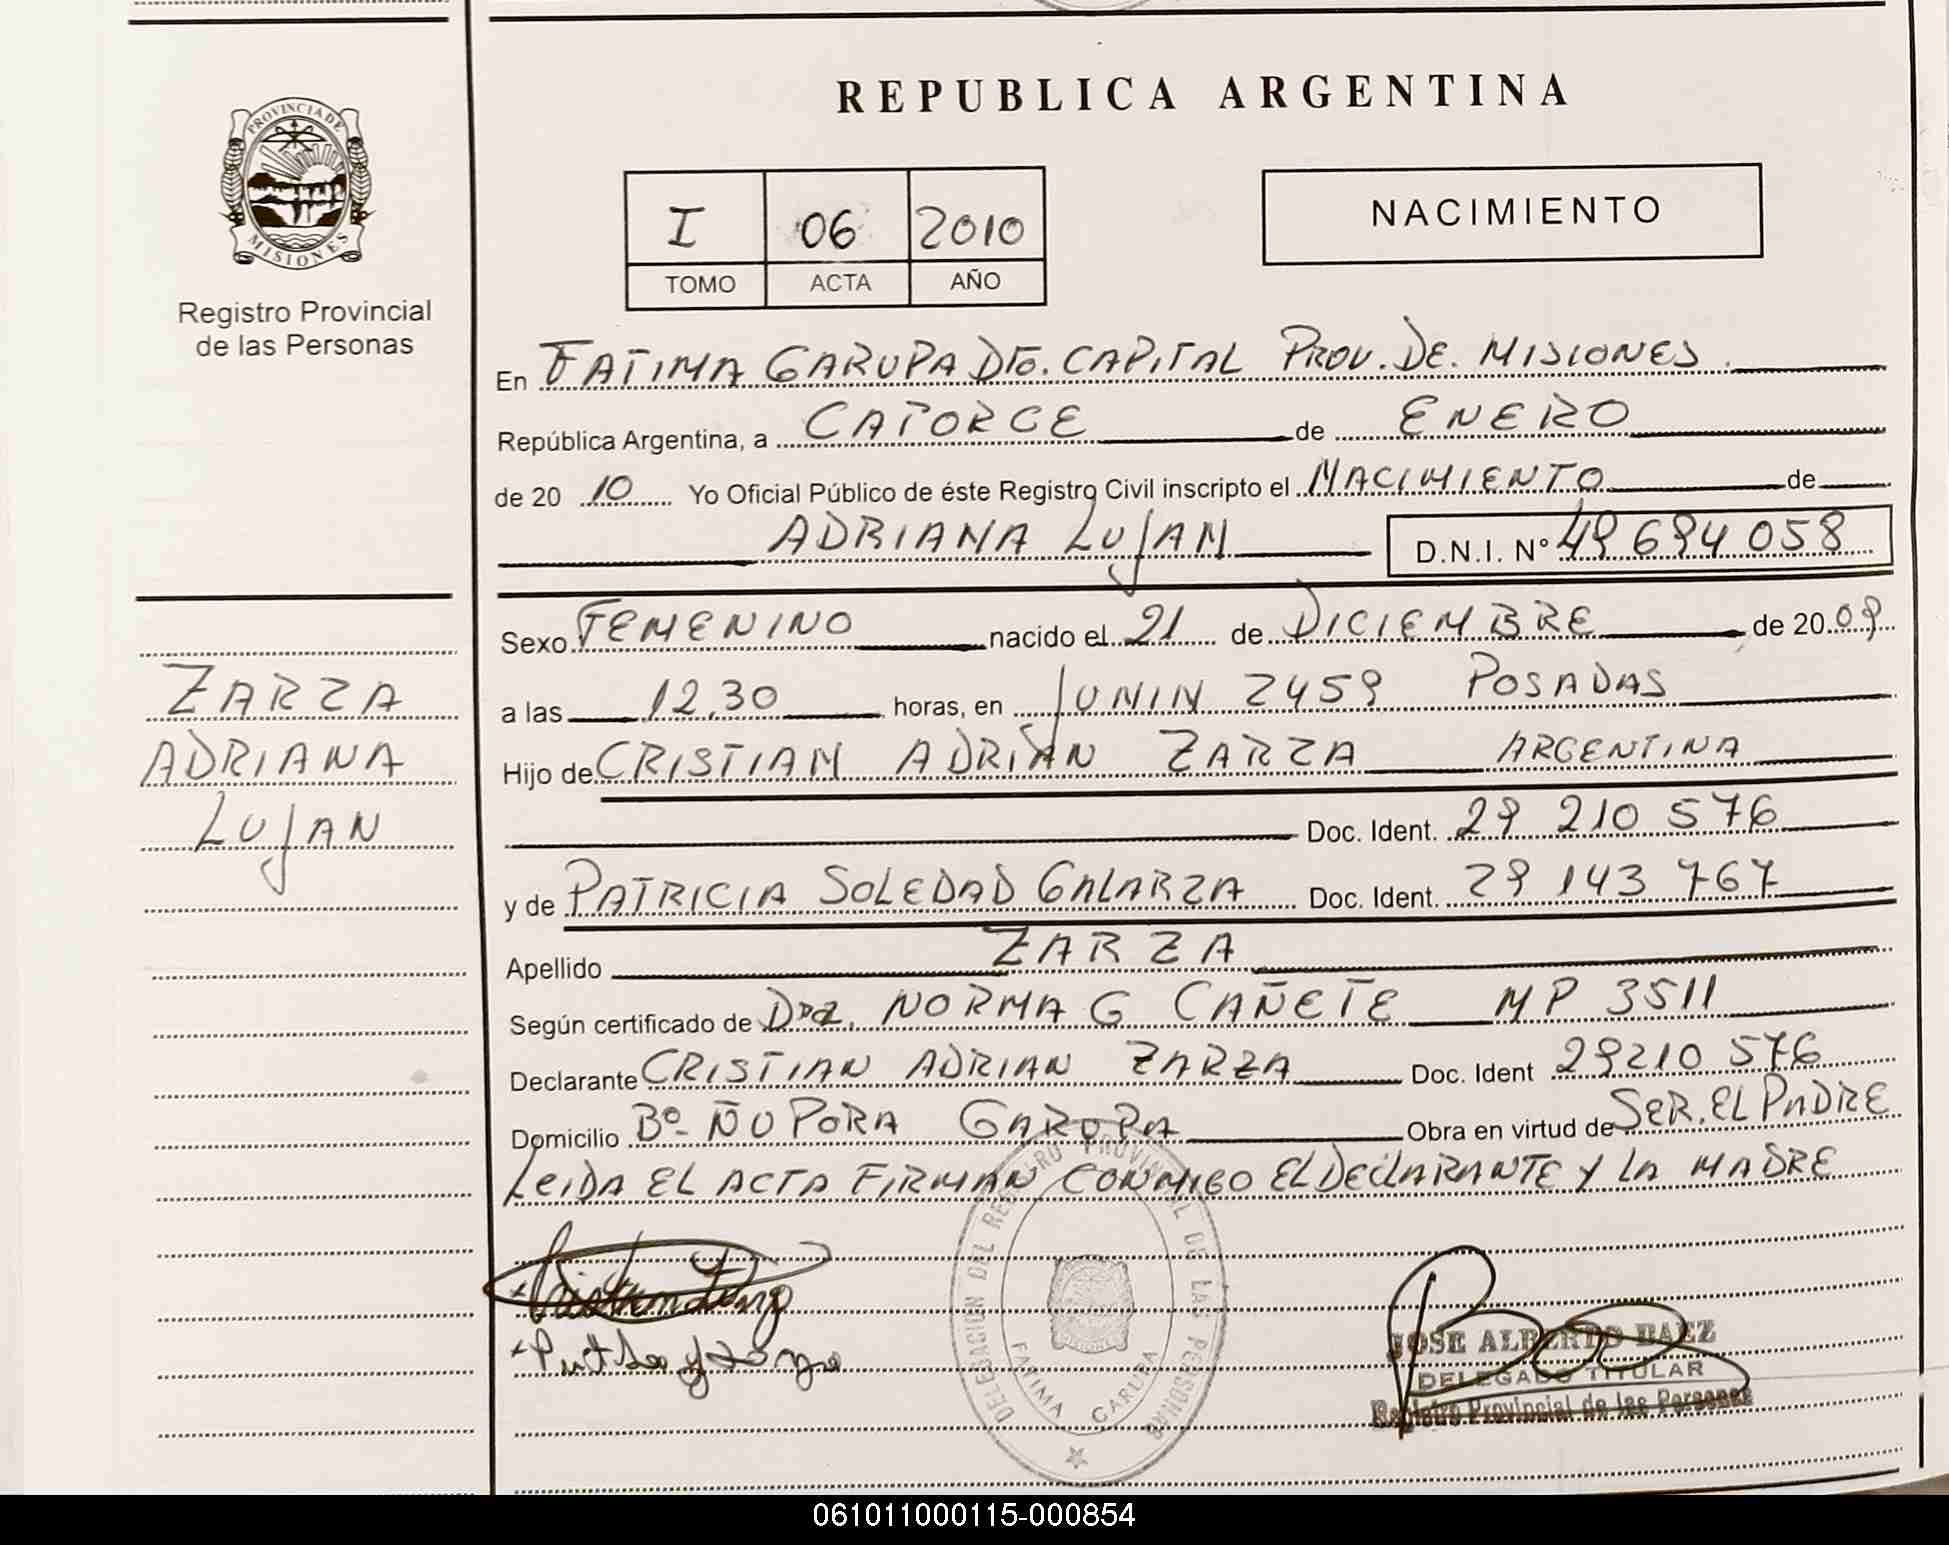 REPUBLICA ARGENTINA
PROVINCIA DE
MISIONES
Registro Provincial
de las Personas
I 06 2010
TOMO ACTA AÑO
NACIMIENTO
En FATIMA GARUPA DTO. CAPITAL PROV. DE. MISIONES.
República Argentina, a CATORCE de ENERO
de 20 10 Yo Oficial Público de éste Registro Civil inscripto el NACIMIENTO de
ADRIANA LUJAN D.N.I. N° 49 694 058
Sexo FEMENINO nacido el 21 de DICIEMBRE de 20 09
a las 12,30 horas, en JUNIN 2459 POSADAS
Hijo de CRISTIAN ADRIAN ZARZA ARGENTINA
Doc. Ident. 29 210 576
y de PATRICIA SOLEDAD GALARZA Doc. Ident. 29 143 767
Apellido ZARZA
Según certificado de Dra. NORMA G CAÑETE MP 3511
Declarante CRISTIAN ADRIAN ZARZA Doc. Ident 29210 576
Domicilio Bº- ÑU PORA GARUPA Obra en virtud de SER. EL PADRE
LEIDA EL ACTA FIRMAN CONMIGO EL DECLARANTE Y LA MADRE
ZARZA
ADRIANA
LUJAN
DELEGACION DEL REGISTRO PROVINCIAL DE LAS PERSONAS
FATIMA GARUPA
JOSE ALBERTO BAEZ
DELEGADO TITULAR
Registro Provincial de las Personas
061011000115-000854